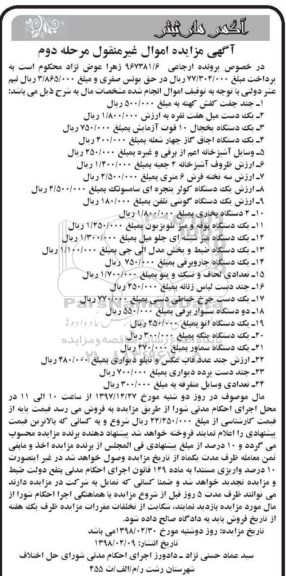 آگهی مزایده اموال غیرمنقول مرحله دوم
در خصوص پرونده ارجاعی ۹۶۷۳۸۱/۶ زهرا عوض نژاد محکوم است به
پرداخت مبلغ ۷۷/۳۰۲/۰۰۰ ریال در حق یونس صفری و مبلغ ۳/۸۶۵/۰۰۰ ریال نیم
عشر دولتی با توجه به توقیف اموال انجام شده مشخصات مال به شرح ذیل می باشد:
۱ـ چند جفت کفش کهنه به مبلغ ۵۰۰/۰۰۰ ریال
۲ـ یک دست مبل هفت نفره به ارزش ۱/۸۰۰/۰۰۰ ریال
۳ـ یک دستگاه یخچال ۱۰ فوت آزمایش بمبلغ ۷۵۰/۰۰۰ ریال
۴ـ یک دستگاه اجاق گاز چهار شعله بمبلغ ۴۰۰/۰۰۰ ریال
۵ـ وسایل آشپزخانه اعم از برقی و غیره بمبلغ ۲۵۰/۰۰۰ ریال
۶ـ ارزش ظروف آشپزخانه ۲ جعبه بمبلغ ۱/۴۰۰/۰۰۰ ریال
۷ـ ارزش سه تخته فرش ۶ متری بمبلغ ۲/۵۰۰/۰۰۰ ریال
۸ـ ارزش یک دستگاه کولر پنجره ای سامسونگ بمبلغ ۲/۵۰۰/۰۰۰ ریال
۹ـ ارزش یک دستگاه گوشی تلفن بمبلغ ۱۸۰/۰۰۰ ریال
۱۰ـ ۲ دستگاه بخاری بمبلغ ۱/۸۰۰/۰۰۰ ریال
۱۱ـ یک دستگاه بوفه و میز تلویزیون بمبلغ ۱/۲۵۰/۰۰۰ ریال
۱۲ـ یک دستگاه میز شیشه ای جلو مبل بمبلغ ۱/۳۰۰/۰۰۰ ریال
۱۳ـ یک دستگاه ضبط و پخش مدل ال جی بمبلغ ۱/۱۰۰/۰۰۰ ریال
۱۴ـ یک دستگاه جاروبرقی بمبلغ ۷۵۰/۰۰۰ ریال
۱۵ـ تعدادی لحاف و تشک و پتو بمبلغ ۱/۷۰۰/۰۰۰ ریال
۱۶ـ چند دست لباس زنانه بمبلغ ۲۵۰/۰۰۰ ریال
۱۷ـ یک دست چرخ خیاطی دستی بمبلغ ۷۷۰/۰۰۰ ریال
۱۸ـ دو دستگاه سشوار برقی بمبلغ ۵۵۰/۰۰۰ ریال
۱۹ـ یک دستگاه اتو بمبلغ ۲۵۰/۰۰۰ ریال
۲۰ـ یک دستگاه پنکه بمبلغ ۳۰۰/۰۰۰ ریال
۲۱ـ یک دستگاه سماور بمبلغ ۲۷۰/۰۰۰ ریال
۲۲ـ ارزش چند عدد قاب عکس و تابلو دیواری بمبلغ ۴۸۰/۰۰۰ ریال
۲۳ـ چند دست پرده دیواری بمبلغ ۷۰۰/۰۰۰ ریال
۲۴ـ تعدادی وسایل متفرقه به مبلغ ۳۰۰/۰۰۰ ریال
مال موصوف در روز دو شنبه مورخ ۱۳۹۷/۱۲/۲۷ از ساعت ۱۰ الی ۱۱ در
محل اجرای احکام مدنی شورا از طریق مزایده به فروش می رسد قیمت پایه از
قیمت کارشناسی از مبلغ ۲۲/۲۵۰/۰۰۰ ریال شروع و به کسانی که بالاترین قیمت
پیشنهادی را اعلام نمایند فروخته خواهد شد پیشنهاد دهنده برنده مزایده محسوب
می گردد و ۱۰ درصد از مبلغ پیشنهادی فی المجلس از برنده مزایده اخذ و مابقی
ثمن معامله ظرف مدت یکماه از تاریخ مزایده وصول خواهد شد در غیر اینصورت
۱۰ درصد واریزی مستندا به ماده ۱۲۹ قانون اجرای احکام مدنی بنفع دولت ضبط
و مزایده تجدید خواهد شد و ضمنا کسانی که تمایل به شرکت در مزایده دارند
می توانند ظرف مدت ۵ روز قبل از شروع مزایده با هماهنگی اجرا احکام شورا از
مال مورد مزایده بازدید نمایند، شکایت از تخلفات مقررات مزایده ظرف یک هفته
از تاریخ فروش باید به دادگاه صالح داده شود.
تاریخ مزایده: روز دوشنبه مورخ ۱۳۹۸/۰۲/۳۰ می باشد
تاریخ انتشار: ۱۳۹۸/۰۲/۰۹
سید عماد حسنی نژاد ـ دادورز اجرای احکام مدنی شورای حل اختلاف
شهرستان رشت ر/م/الف/ث ۲۵۵